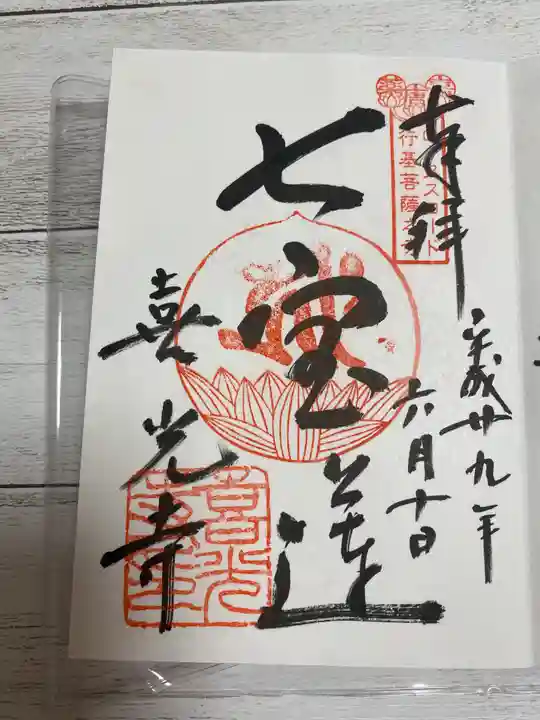 奉拝
平成廿九年
六月十日
七宝蓮
喜光寺
行基菩薩
喜光寺